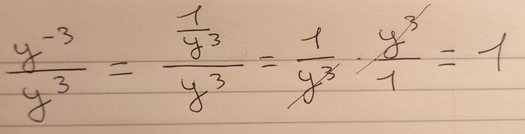 y⁻³/y³ = (1/y³)/y³ = 1/y³ · y³/1 = 1